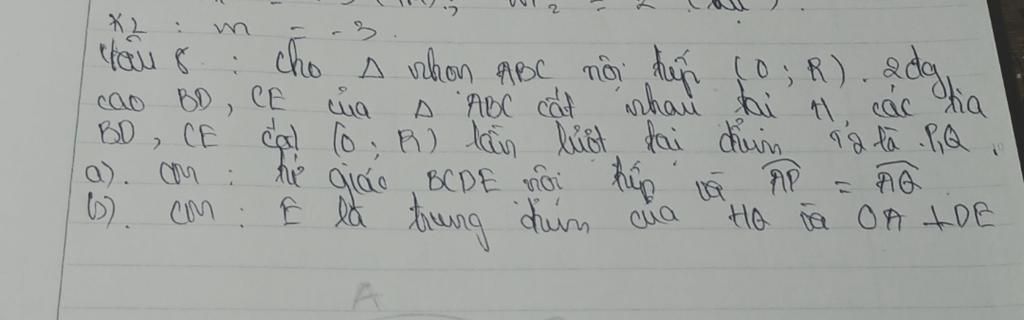 x2 : m = -3.
Câu 8 : Cho Δ nhọn ABC nội tiếp (O ; R). 2 đg
cao BD, CE của Δ ABC cắt nhau tại H, các tia
BD, CE cắt (O ; R) lần lượt tại điểm t2 là P, Q.
a). CM : tứ giác BCDE nội tiếp và AP = AQ
b). CM : E là trung điểm của HQ và OA ⊥ DE
A